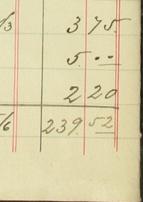 /3 3 75.
5 . --
2 20
/6 239. 52